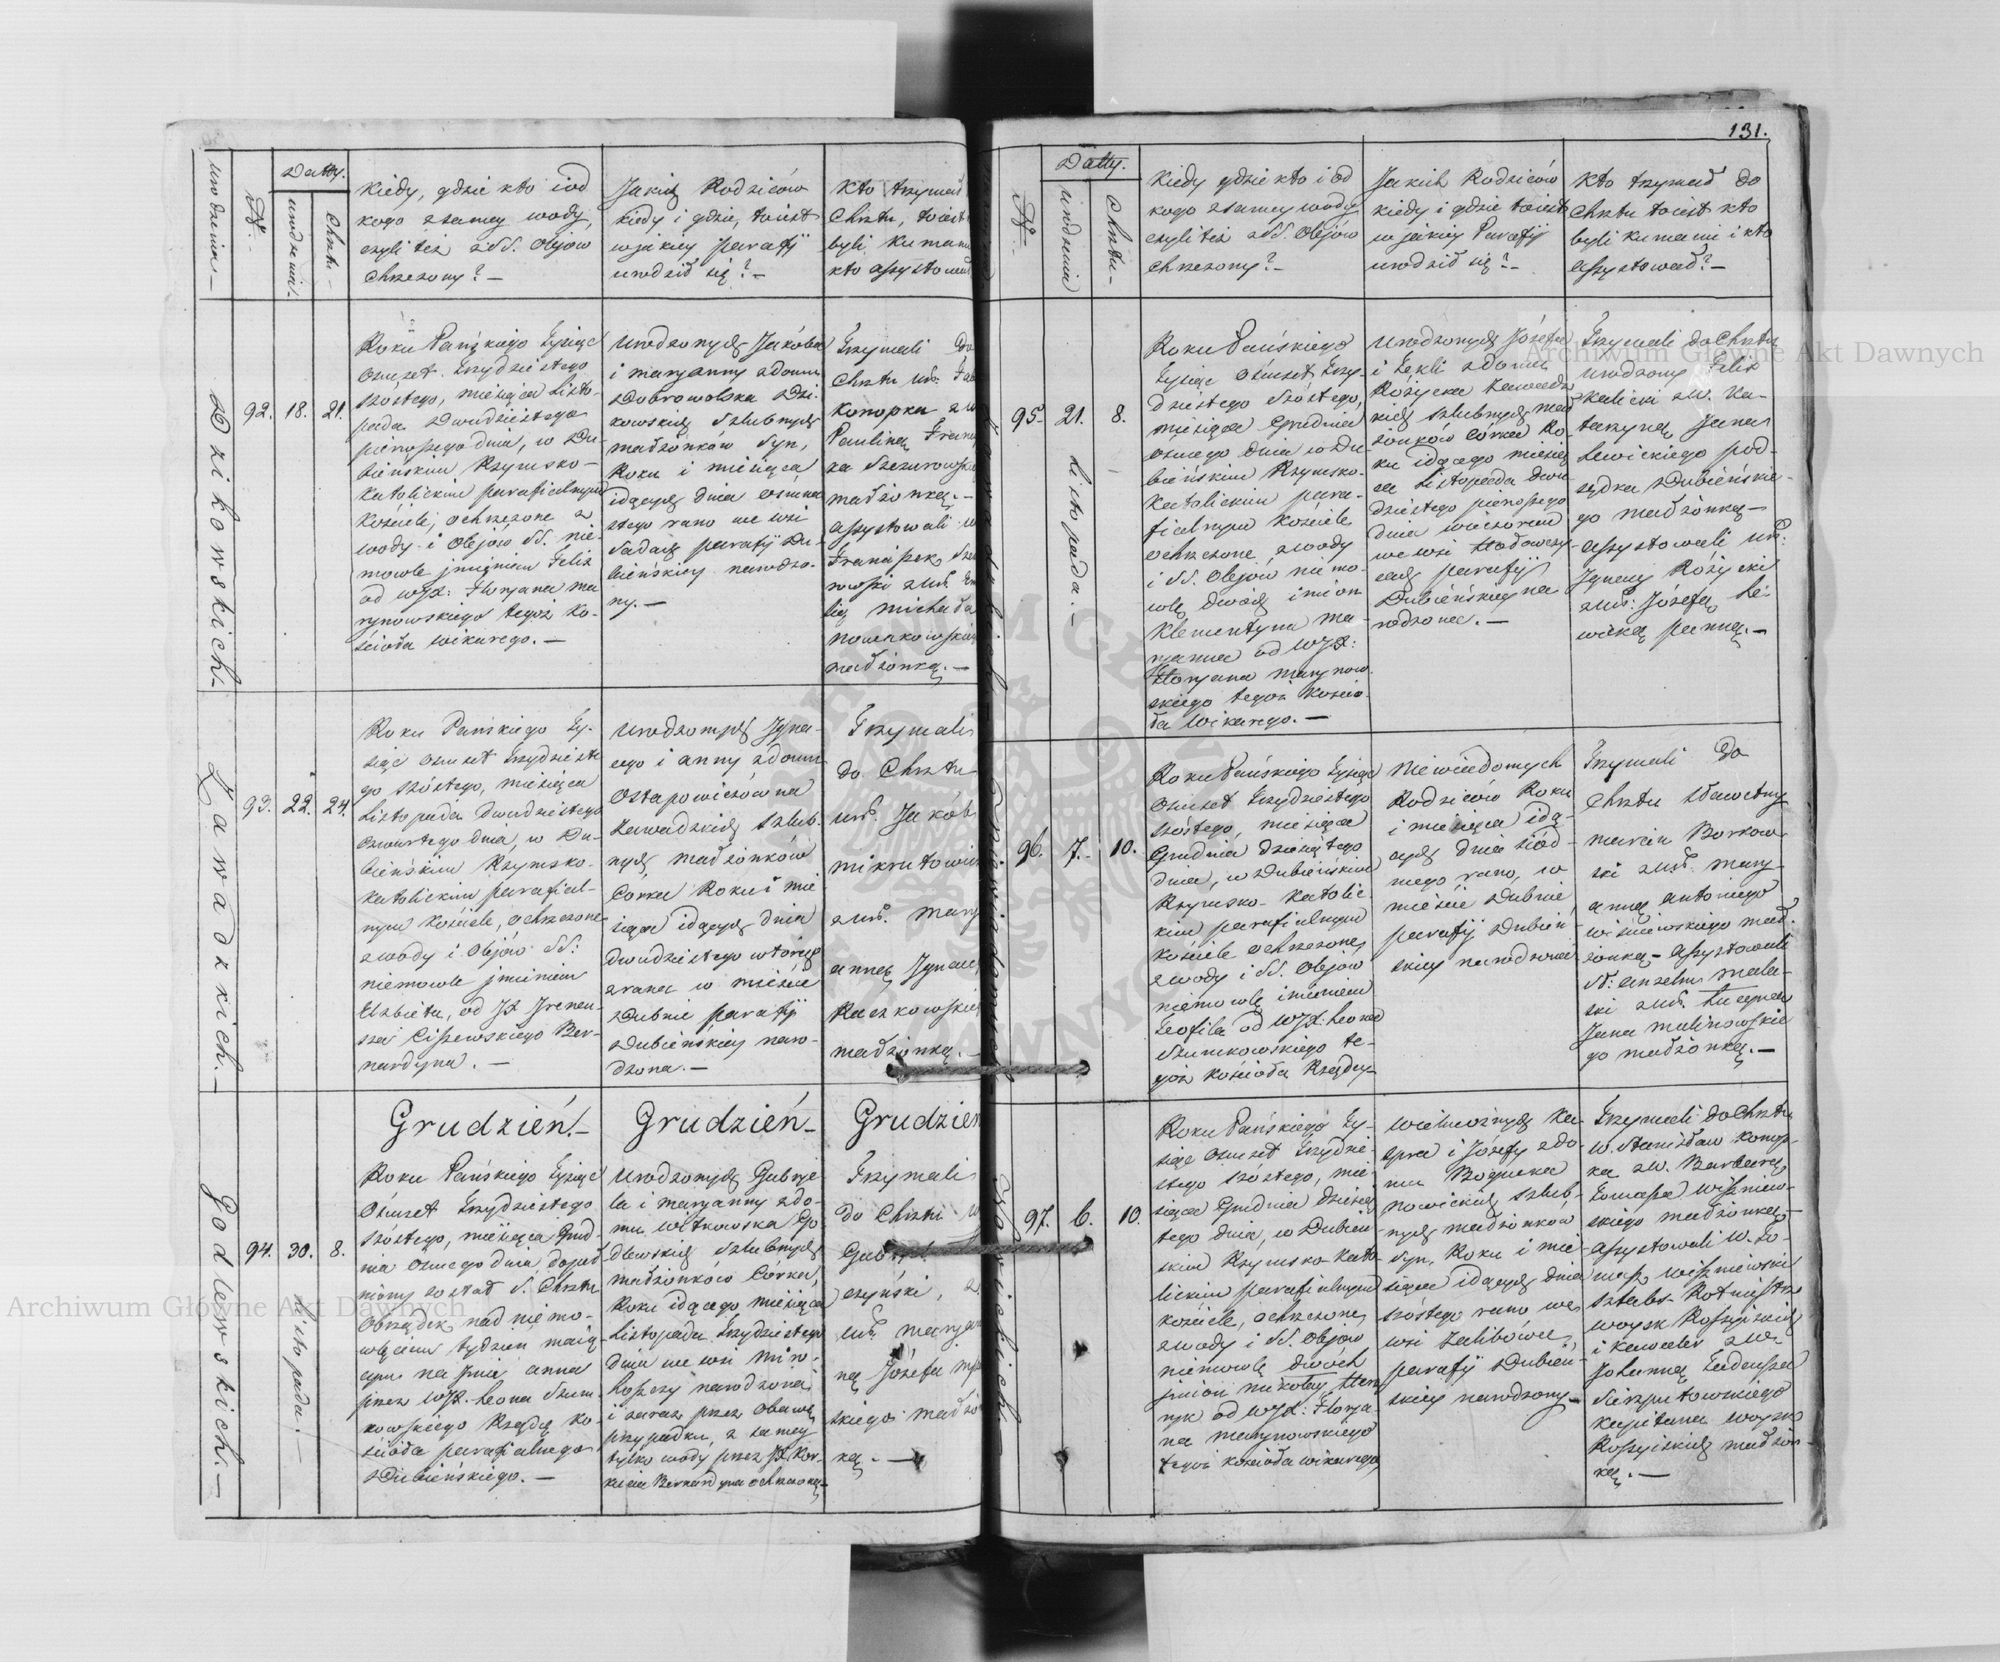 131.
urodzenia.
№.
Datty.
urodzenia.
Chrztu.
Kiedy, gdzie kto i od
kogo z samey wody,
czyli też z SS. Olejów
Chrzczony? —
Jakich Rodziców
kiedy i gdzie, toiest
w jakiey parafij
urodził się? —
Kto trzymał
Chrztu, toiest
byli Kumami
kto assystował
Dzikowskich. —
92.
18.
21.
Roku Pańskiego Tysiąc
Osmset Trzydziestego
szóstego, miesiąca Listo-
pada Dwudziestego
pierwszego dnia, w Du-
bieńskim Rzymsko-
Katolickim parafialnym
Kościele, ochrzczone z
wody i Olejów SS. nie-
mowle jmieniem Felix
od WJX: Floryana Ma
rynowskiego tegoż Ko-
ścioła Wikarego. —
Urodzonych Jakóba
i Maryanny z domu
Dobrowolska Dzi-
kowskich Szlubnych
małżonków Syn,
Roku i miesiąca
idących dnia osmna
stego rano we wsi
Sadach parafij Du-
bieńskiey narodzo-
ny. —
Trzymali Do
Chrztu Ur:
Konopka z
Pauliną
małżonką. —
assystowali
Franciszek
z Ur:
Michała
Nowakowskie
małżonką. —
Zawadzkich. —
93.
22.
24.
Roku Pańskiego Ty-
siąc Osmset Trzydzieste
go szóstego, miesiąca
Listopada Dwudziestego
czwartego dnia, w Du-
bieńskim Rzymsko-
Katolickim parafial-
nym Kościele, ochrzczone
z wody i Olejów SS:
niemowle jmieniem
Elzbieta, od JX Ireneu-
sza Ciszewskiego Ber-
nardyna. —
Urodzonych Igna-
cego i Anny z domu
Ostapowiczówna
Zawadzkich Szlub-
nych małżonków
Córka Roku i mie
siąca idących dnia
Dwudziestego wtórego
z rana w mieście
Dubnie parafij
Dubieńskiey naro-
dzona. —
Trzymali
do Chrztu
Ur. Jakób
z Ur. Mary
anną Ignac
Raczkowskie
małżonką. —
Godlewskich. —
94.
30.
8.
Listopada. —
Grudzień! —
Grudzień —
Grudzień
Roku Pańskiego Tysiąc
Osmset Trzydziestego
szóstego, miesiąca Grud-
nia osmego dnia, dopeł
niony został S. Chrztu
Obrządek nad niemo-
wlęciem tydzień maią
cym na Jmie Anna
przez WJX. Leona Szum
kowskiego Rządcę Ko-
ścioła parafialnego
Dubieńskiego. —
Urodzonych Gabrye-
la i Maryanny z do-
mu Witkowska Go
dlewskich Szlubnych
małżonków Córka,
Roku idącego miesiąca
Listopada Trzydziestego
dnia we wsi
narodzona
i zaraz przez obawę
przypadku z samey
tylko wody przez JX
Bernardyna ochrzczona
Trzymali
do Chrztu
Ur. Maryan
ną Józefa
skiego małżo
ką. —
№.
Datty.
urodzenia
Chrztu. —
Kiedy gdzie kto i od
kogo z samey wody
czyli też z SS. Olejów
chrzczony? —
Jakich Rodziców
kiedy i gdzie toiest
w jakiey Parafij
urodził się? —
Kto trzymał do
Chrztu toiest kto
byli Kumami i kto
assystował? —
95.
21.
8.
Listopada. —
Roku Pańskiego
Tysiąc Osmset Trzy-
dziestego szóstego,
miesiąca Grudnia
osmego dnia w Du-
bieńskim Rzymsko-
Katolickim para-
fialnym Kościele
ochrzczone z wody
i SS. Olejów niemo-
wlę dwóch imion
Klementyna Ma-
ryanna od WJX:
Floryana Marynow-
skiego tegoż Kościo-
ła Wikarego. —
Urodzonych Józefa
i Tekli z domu
Różycka Zawadz
kich Szlubnych mał
żonków Córka Ro-
ku idącego miesią
ca Listopada Dwu-
dziestego pierwszego
dnia wieczorem
we wsi
parafij
Dubieńskiey na
rodzona. —
Trzymali do Chrztu
Urodzony Felix
Kalicki z W. Ka-
tarzyną Jana
Lewickiego pod-
sędka Dubieńskie-
go małżonką. —
assystowali Ur:
Ignacy Różycki
z Ur: Józefą Le-
wicką panną. —
96.
7.
10.
Roku Pańskiego Tysiąc
Osmset Trzydziestego
szóstego, miesiąca
Grudnia dziesiątego
dnia, w Dubieńskim
Rzymsko-Katolic
kim parafialnym
kościele ochrzczone
z wody i SS. Olejów
niemowlę imieniem
Teofila od WJX: Leona
Szumkowskiego te-
goż kościoła Rządcy
Niewiadomych
Rodziców Roku
i miesiąca idą-
cych dnia siód-
mego rano, w
mieście Dubnie
parafij Dubień-
skiey narodzona
Trzymali Do
Chrztu Sławetny
Marcin Borkow-
ski z Ur. Mary-
anną Antoniego
Wiśniewskiego mał-
żonką — assystowali
S: Anzelm Mali-
ski z Ur. Lucyną
Jana Malinowskie
go małżonką. —
97.
6.
10.
Roku Pańskiego Ty-
siąc Osmset Trzydzie-
stego szóstego, mie-
siąca Grudnia dziesią
tego dnia, w Dubień
skim Rzymsko Kato-
lickim parafialnym
kościele, ochrzczone
z wody i SS. Olejów
niemowlę dwóch
jmion Mikołay Hen
ryk od WJX: Florya-
na Marynowskiego
tegoż kościoła Wikarego
Wielmożnych Ka-
spra i Józefy z do-
mu Bogucka
Nowickich Szlub-
nych małżonków
Syn, Roku i mie-
siąca idących dnia
szóstego rano we
wsi
parafij Dubień-
skiey narodzony. —
Trzymali do Chrztu
W. Stanisław Konop-
ka z W. Barbarą
Tomasza Wiszniew-
skiego małżonką —
Assystowali W. To-
masz Wiszniewski
Sztabs-Rotmistrz
Woysk Rossyiskich
i Kawaler z W.
Johanną Tadeusza
Sierzputowskiego
Kapitana Woysk
Rossyiskich małżon-
ką. —
Archiwum Główne Akt Dawnych
Archiwum Główne Akt Dawnych